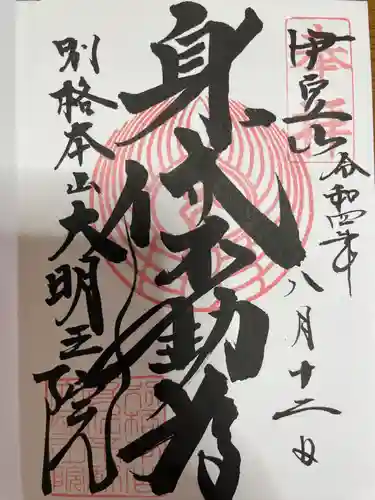 伊豆山
令和四年
八月十二日
身代不動尊
別格本山大明王院